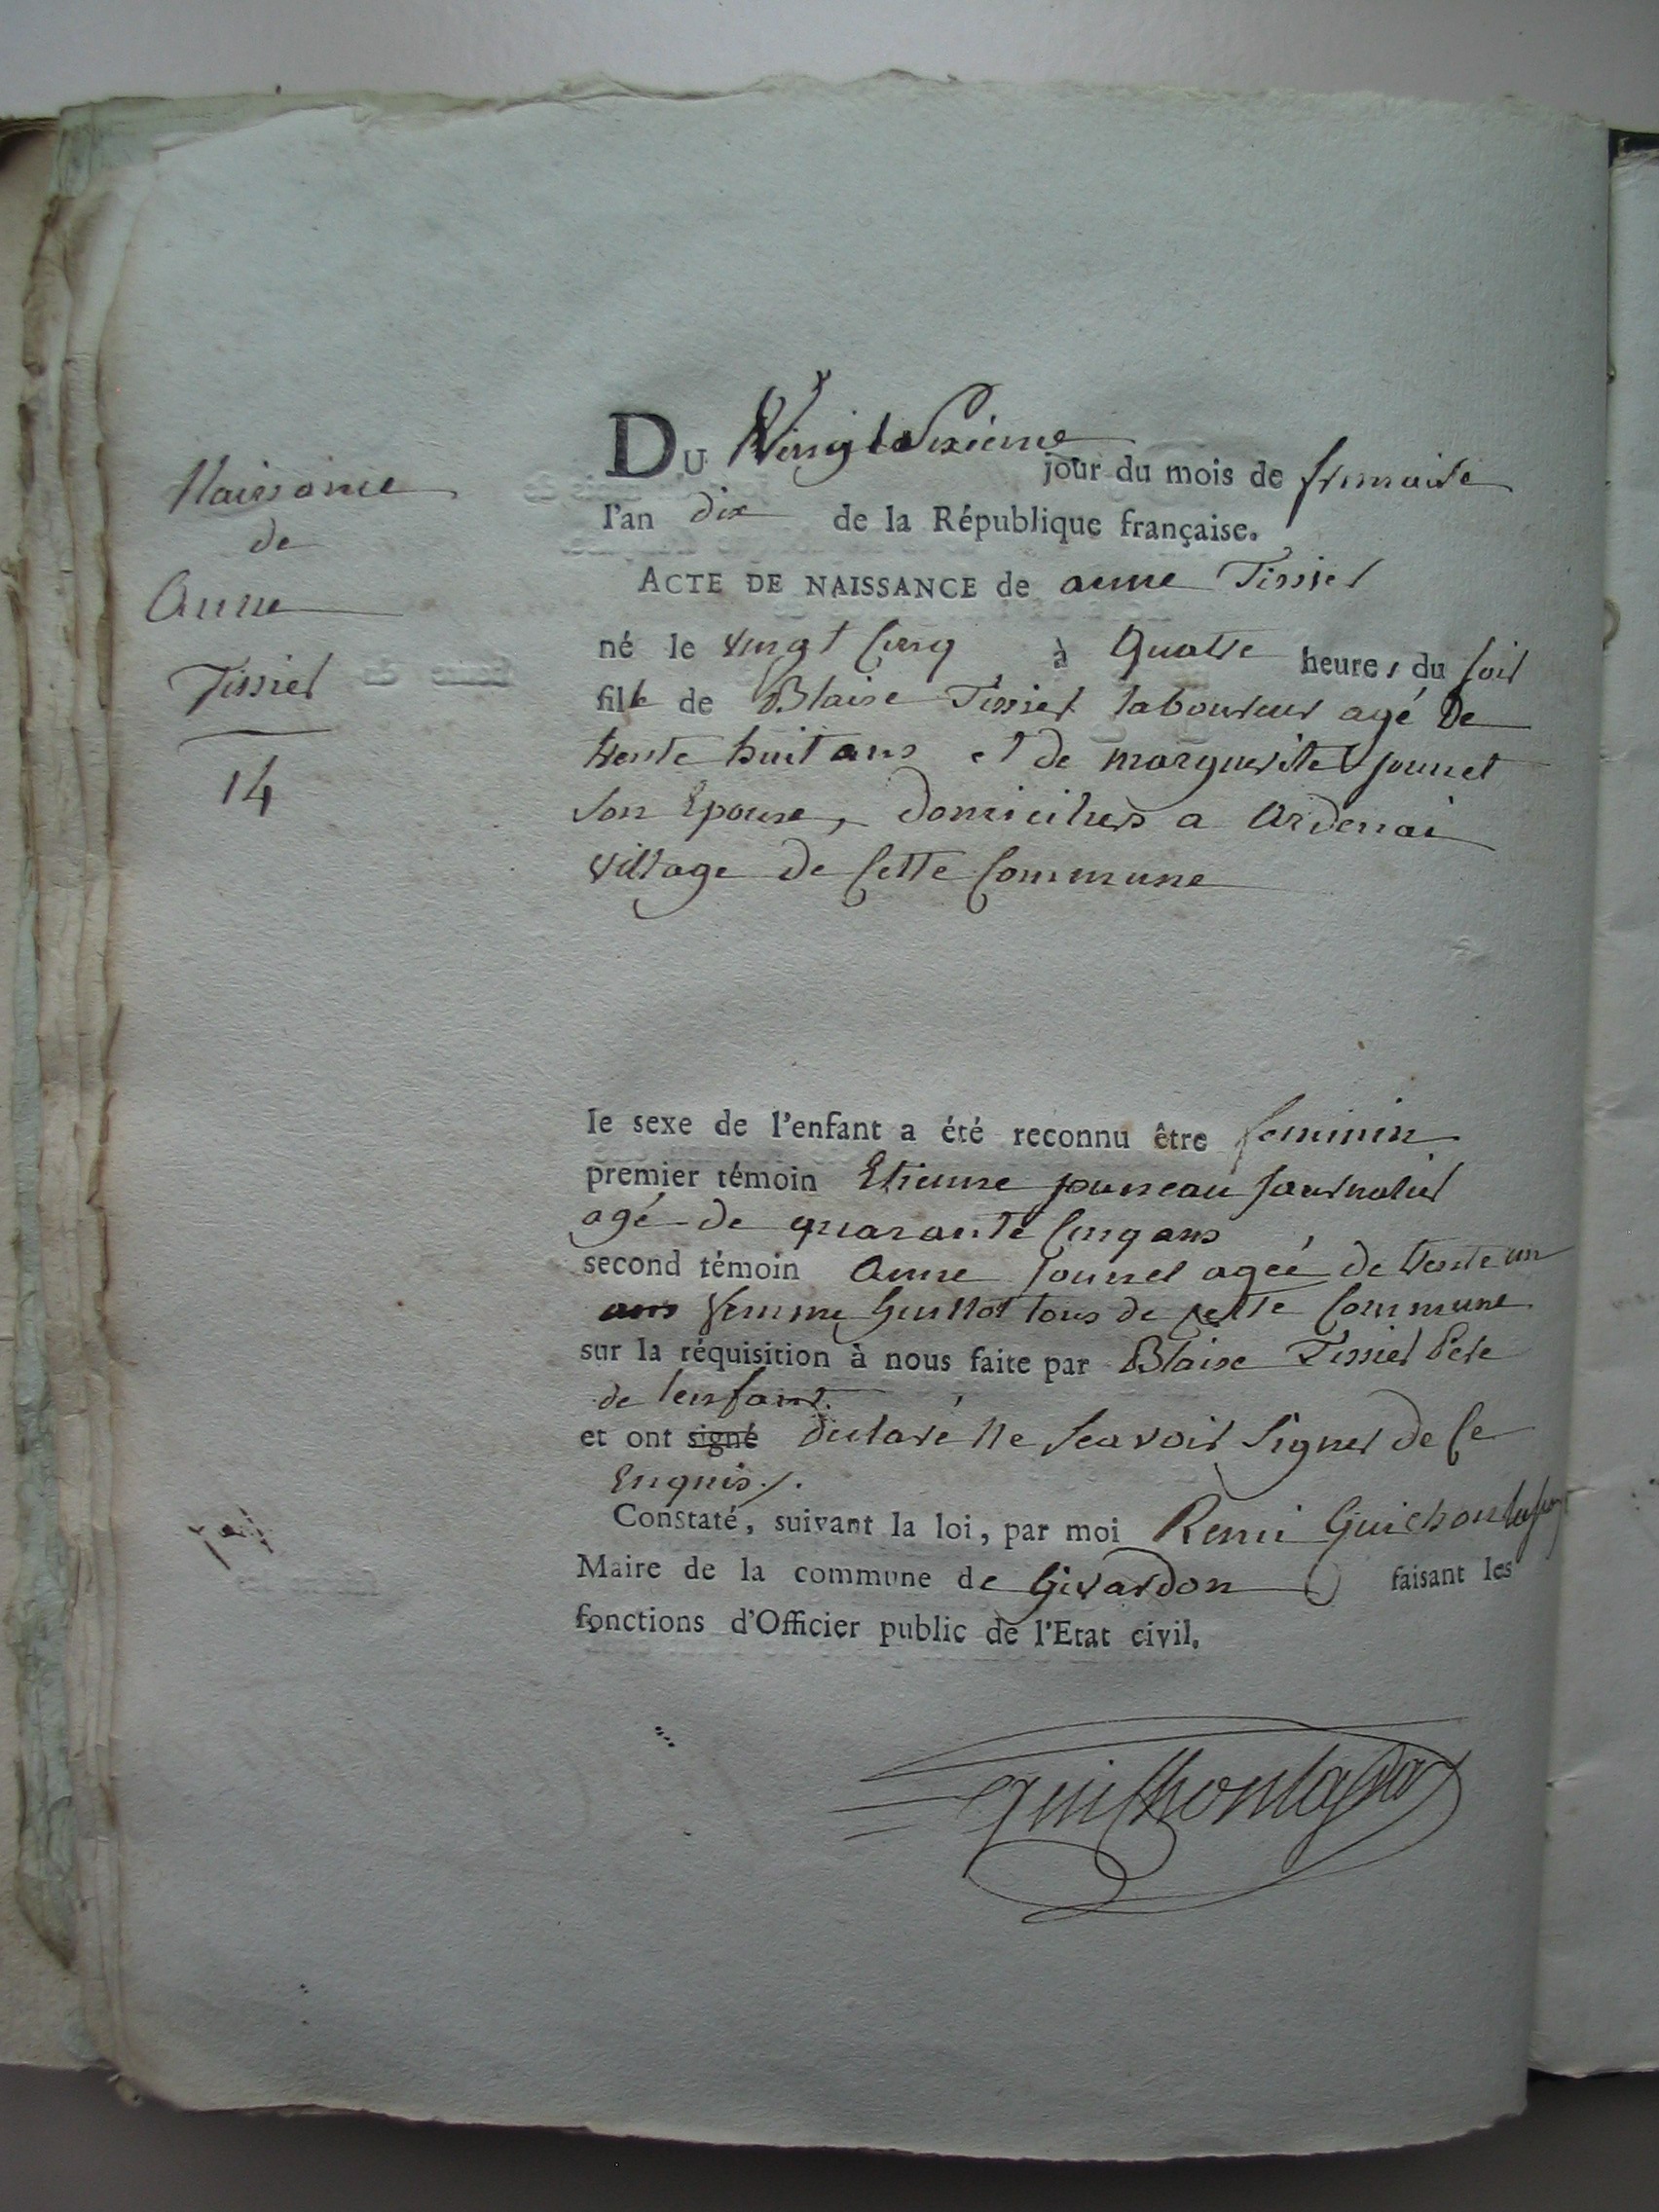 Naissance
de
Anne
Tissier
14
DU Vingt Sixième jour du mois de frimaire
l'an dix de la République française.
ACTE DE NAISSANCE de anne Tissier
né le vingt cinq à quatre heures du soir
fille de Blaise Tissier laboureur agé De
trente huit ans et de marguerite jounet
son Epouse, domiciliés a Ardenai
village de cette commune
le sexe de l'enfant a été reconnu être feminin
premier témoin Etienne jouneau journalier
agé de quarante cinq ans
second témoin Anne jounet agée de trente un
ans femme Guillot tous de cette commune
sur la réquisition à nous faite par Blaise Tissier Père
de lenfant.
et ont signé declaré ne scavoir signer de ce
Enquis
Constaté, suivant la loi, par moi Remi
Maire de la commune de Givardon faisant les
fonctions d'Officier public de l'Etat civil.